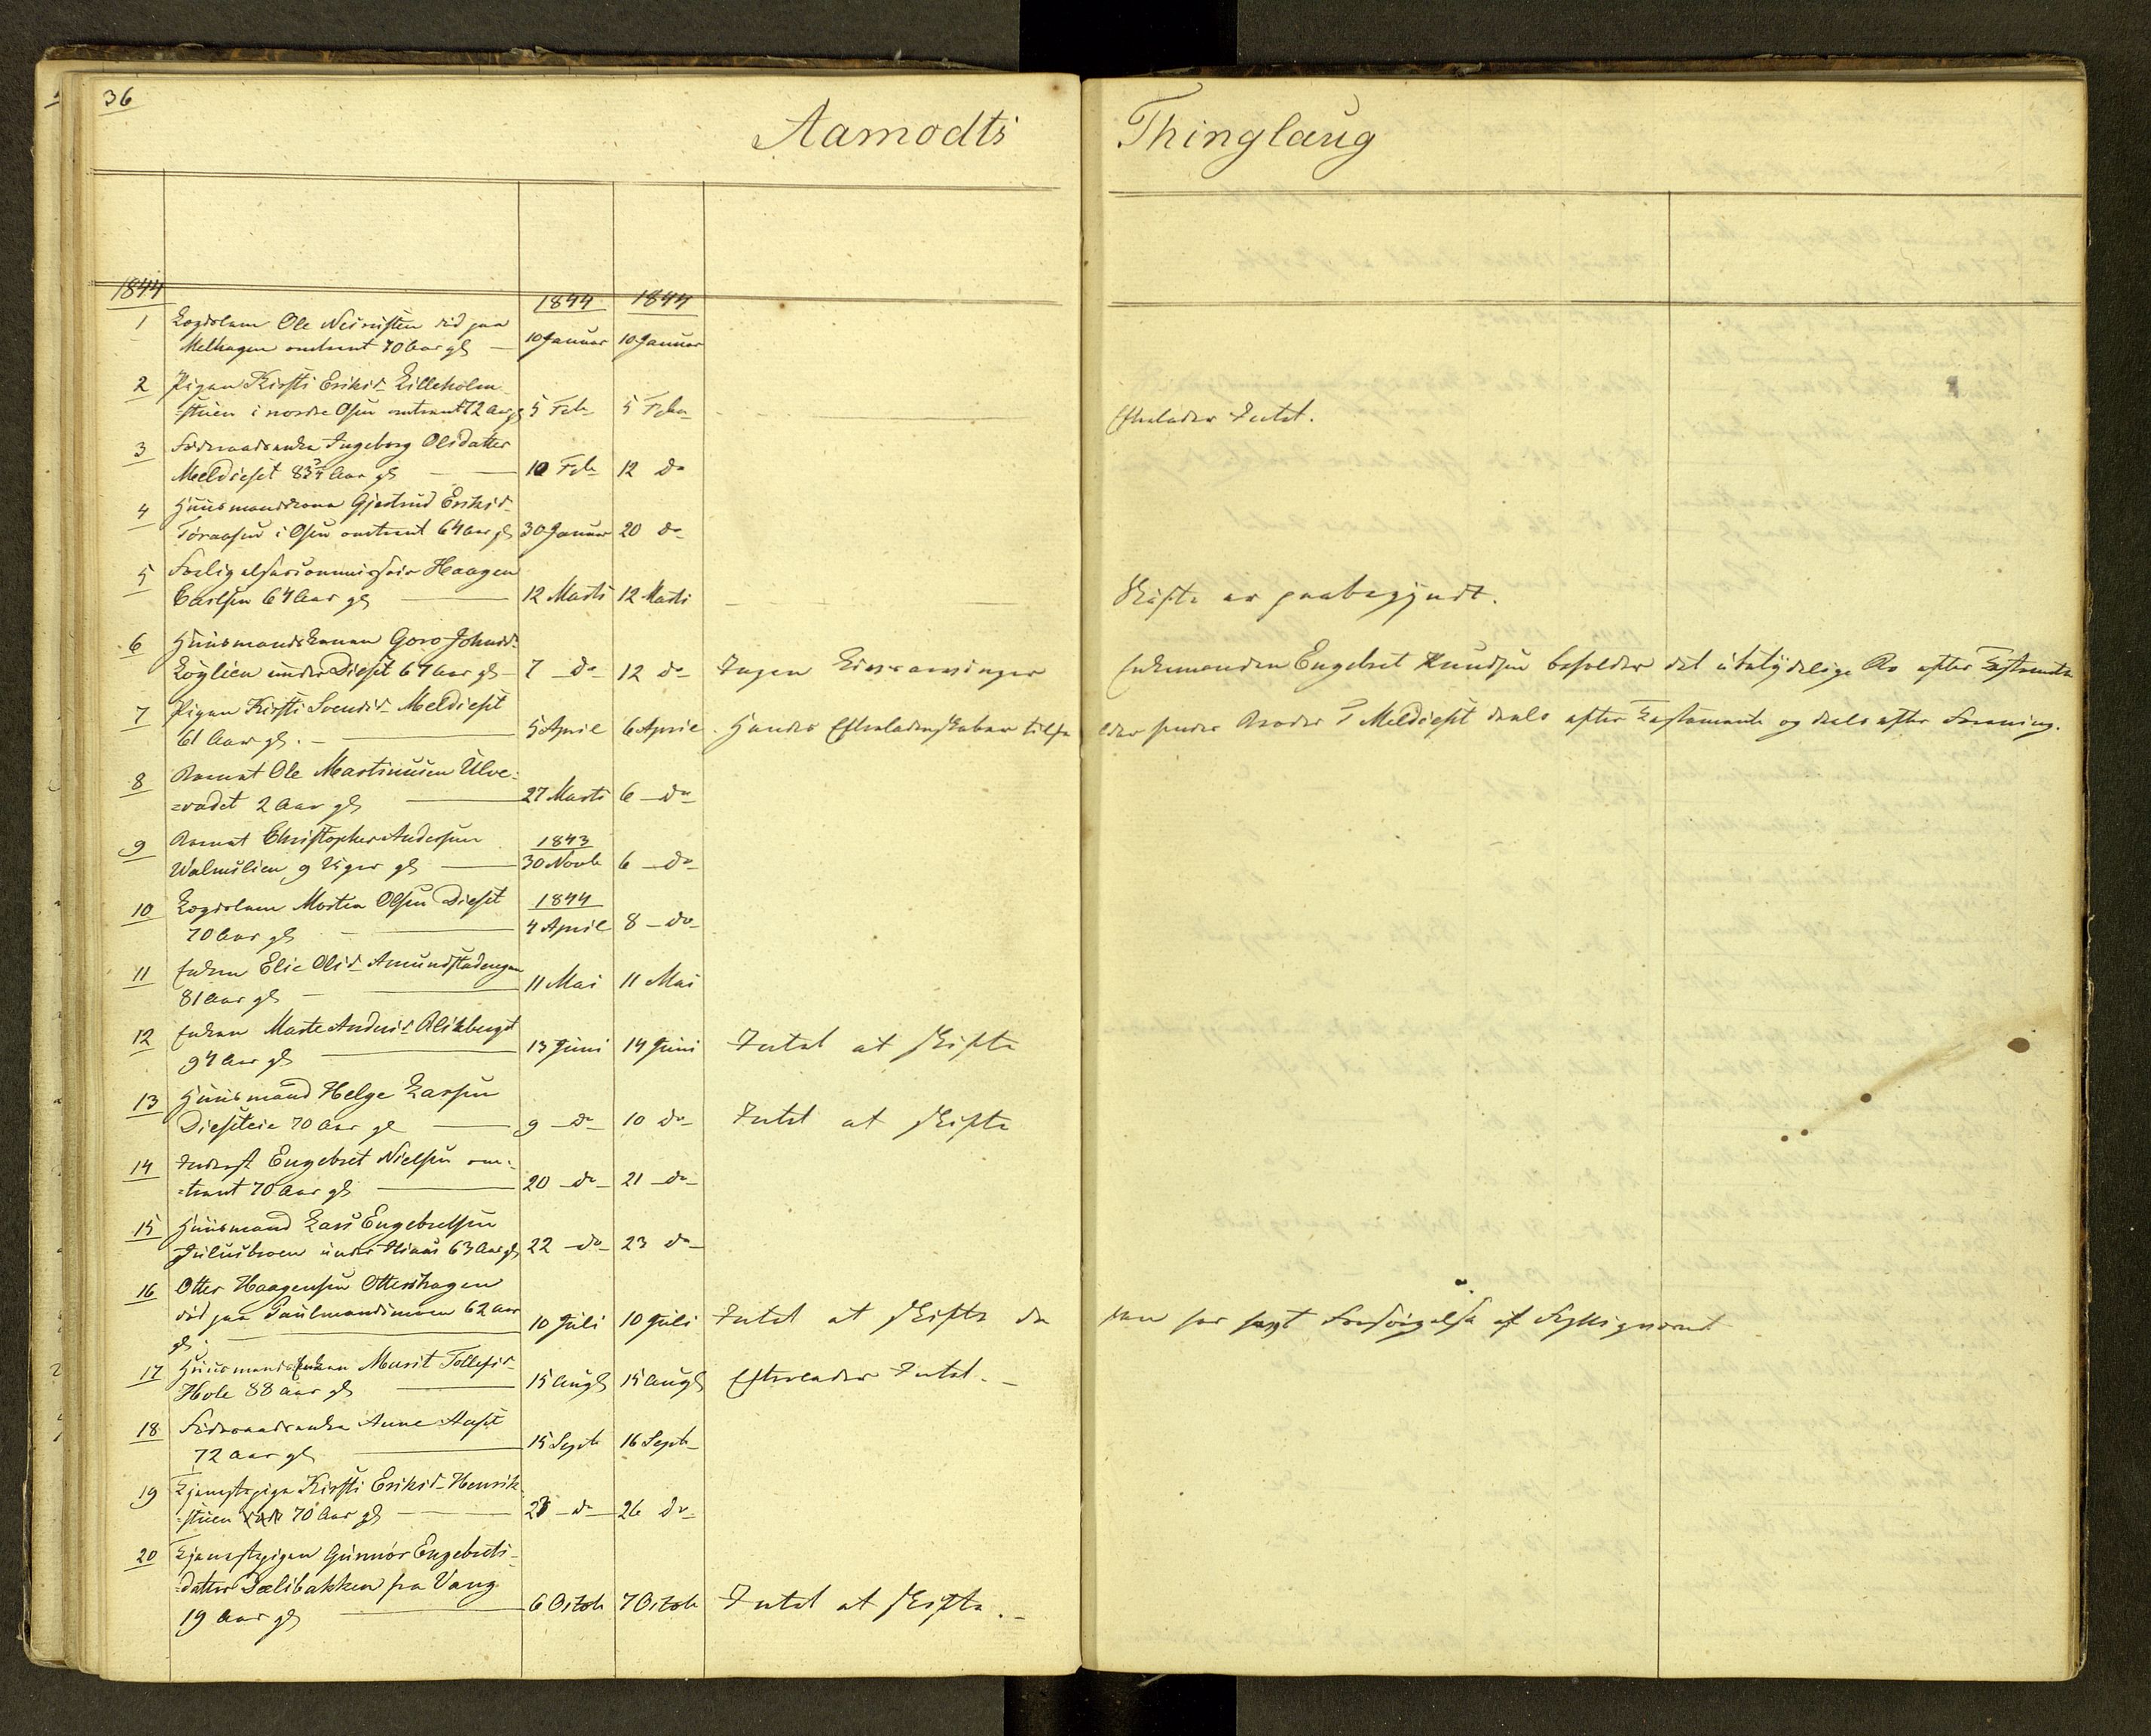 36
Aamodts Thinglaug
1844
1844 1844
1 Lægdslem Ole død paa
Melhagen omtrent 70 Aar gl 10 Januar 10 Januar
2 Pigen Kirsti Eriksd Lilleholm
stuen i nordre Osen omtrent 72 Aar g 5 Feb 5 Febr Efterlader Intet.
3 Føderaadsenke Ingeborg Olsdatter
Meeldieset 83 Aar gl 10 Feb 12 do
4 Huusmandskone Gjertrud Eriksd
Toraasen i Osen omtrent 64 Aar gl 30 Januar 20 do
5 Forligelsescommissair Haagen
Carlsen 64 Aar gl 12 Marts 12 Marts Skifte er paabegyndt.
6 Huusmandskonen Goro Johnsd
Løglien under Dieset 64 Aar gl 7 do 12 do Ingen Livsarvinger Enkemanden Engebret Knudsen beholder det ubetydelige Bo efter Testamente
7 Pigen Kirsti Svendsd Meldieset
61 Aar gl. 5 April 6 April. Hendes Efterladenskaber tilfalder hendes Broder P Meldieset deels efter Testamente og deels efter Forening.
8 Barnet Ole Martinusen Ulve-
=vadet 2 Aar gl 27 Marts 6 do
9 Barnet Christopher Andersen 1843
Walmslien 9 Uger gl 30 Novb 6 do
10 Lægdslem Morten Olsen Dieset 1844
70 Aar gl 4 April 8 do
11 Enken Elie Olsd Amundstadengen
81 Aar gl 11 Mai 11 Mai
12 Enken Marte Andersd
94 Aar gl 13 Juni 14 Juni Intet at skifte
13 Huusmand Helge Larsen
Dieseteie 70 Aar gl 9 do 10 do Intet at skifte
14 Inderst Engebret Nielsen om-
=trent 70 Aar gl 20 do 21 do
15 Huusmand Lars Engebretsen
Julusmoen under 63 Aar gl 22 do 23 do
16 Otter Haagensen Ottershagen
død paa 62 Aar
gl 10 Juli 10 Juli Intet at skifte da han har havt Forsørgelse af Fattigvæsenet
17 Huusmandsenken Marit Tollefsd
Hole 88 Aar gl 15 Augt 15 Augt Efterlader Intet.
18 Føderaadsenke Anne Aaset
72 Aar gl 15 Septb 16 Septb
19 Tjenestepige Kirsti Eriksd Henrik
stuen 70 Aar gl 23 do 26 do
20 Tjenestepigen Gunnor Engebrets-
datter Dælibakken fra Vang
19 Aar gl 6 Octob 7 Octob Intet at skifte.